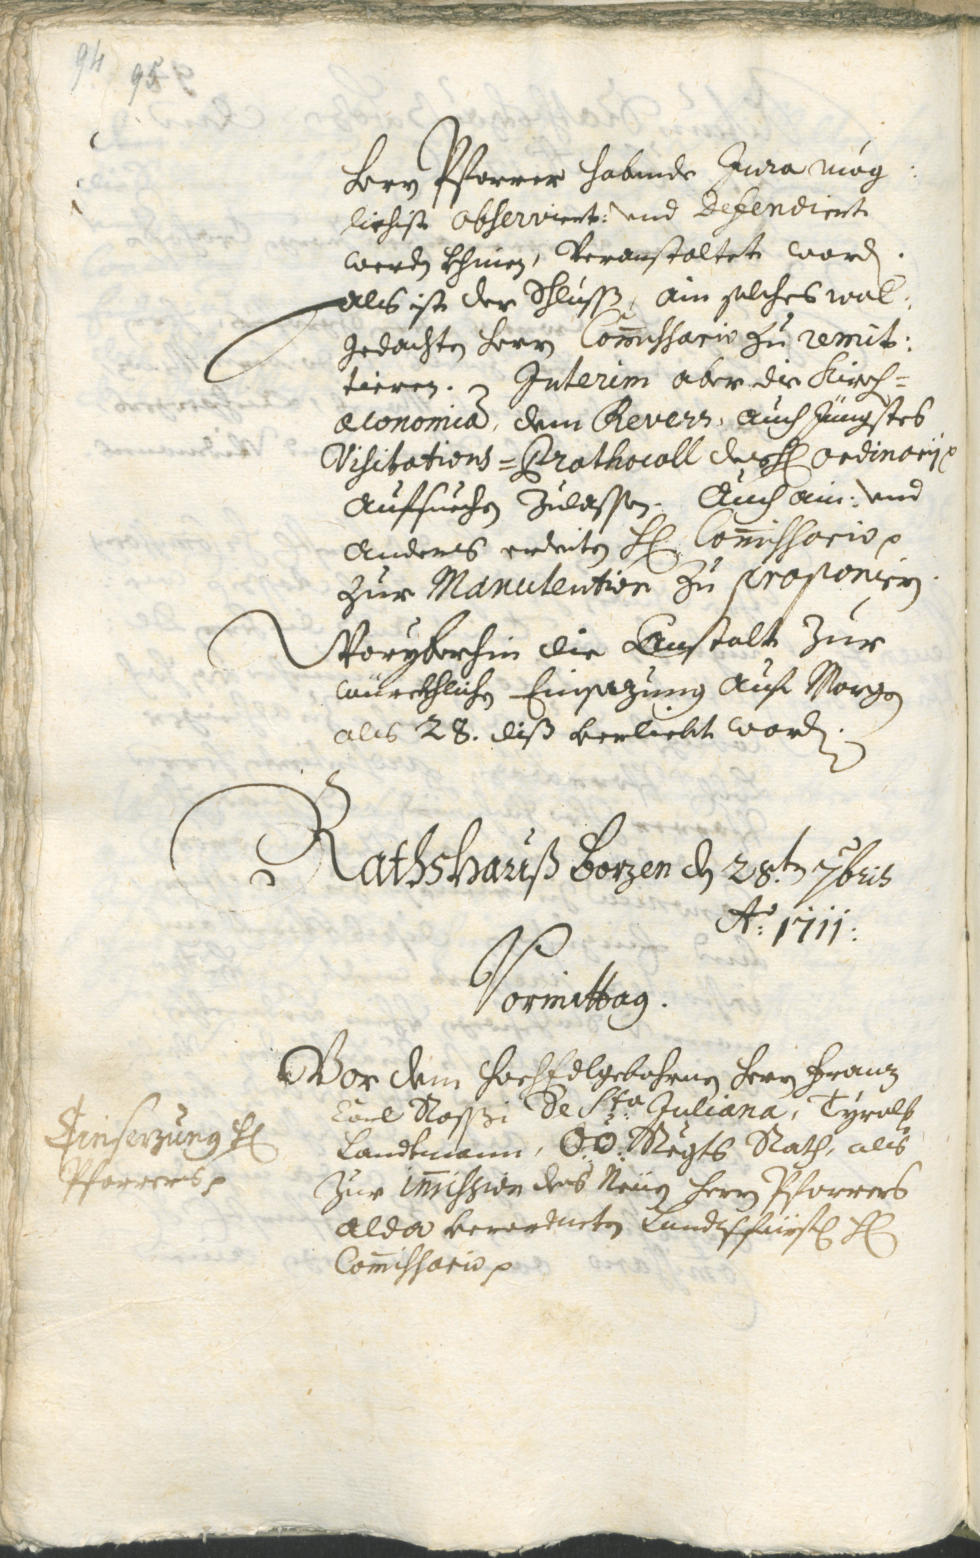 94 95
Herrn Pfarrer habende Jura mög:
lichist observiert: und defendiert
werden khinen, veranstaltet word.
als ist der Schluss, ain solches wol:
gedachten Herrn Commissario zu remit:
tieren. Interim aber die Kirch=
oeconomia, dem Revers, auch jüngstes
Visitations=Prothocoll des H. ordinarij
aufsuechen zulassen. Auch ain: und
anders erdeiten H. Commissario
zur Manutention zu proponiern.
Voryberhin die Anstalt zur
würckhlichen Einsazung auf Morgen
als 28. diß beliebt word.
Rathshauß Bozen den 28.ten 7bris
Ao: 1711:
Vormittag.
Vor dem HochEdlgebohrnen Herrn Franz
Carl Rossi de Sta. Juliana, Tyrols
Einsezung H.
Pfarrers
Landtmann, O:Ö: Regts Rath, als
zur immission des Neüen Herrn Pfarrers
alda verordneten Landtsfürstl. H.
Commissario